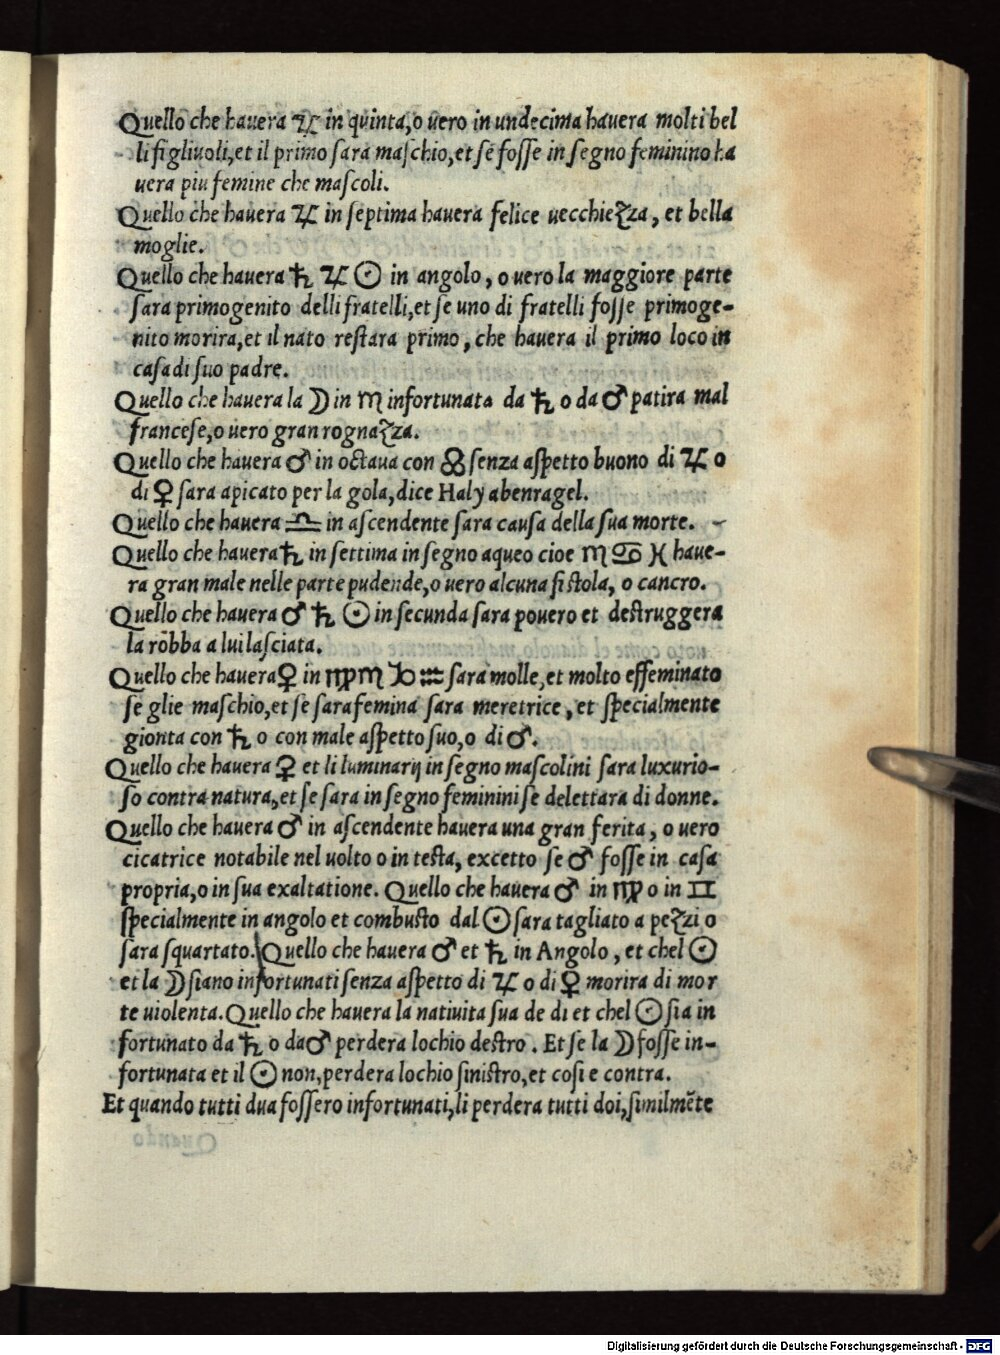 Quello che hauera ♃ in quinta,o uero in undecima hauera molti bel
li figliuoli,et il primo sara maschio,et se fosse in segno feminino ha
uera piu femine che mascoli.
Quello che hauera ♃ in septima hauera felice uecchiezza, et bella
moglie.
Quello che hauera ♄ ♃ ☉ in angolo, o uero la maggiore parte
sara primogenito delli fratelli,et se uno di fratelli fosse primoge-
nito morira,et il nato restara primo, che hauera il primo loco in
casa di suo padre.
Quello che hauera la ☽ in ♏ infortunata da ♄ o da ♂ patira mal
francese,o uero gran rognazza.
Quello che hauera ♂ in octaua con ☋ senza aspetto buono di ♃ o
di ♀ sara apicato per la gola,dice Haly abenragel.
Quello che hauera ♎ in ascendente sara causa della sua morte.
Quello che hauera ♄ in settima in segno aqueo cioe ♏ ♋ ♓ haue-
ra gran male nelle parte pudende,o uero alcuna fistola, o cancro.
Quello che hauera ♂ ♄ ☉ in secunda sara pouero et destruggera
la robba a lui lasciata.
Quello che hauera ♀ in ♍ ♏ ♑ ♒ sara molle,et molto effeminato
se glie maschio,et se sara femina sara meretrice, et specialmente
gionta con ♄ o con male aspetto suo,o di ♂.
Quello che hauera ♀ et li luminarij in segno mascolini sara luxurio-
so contra natura,et se sara in segno feminini se delettara di donne.
Quello che hauera ♂ in ascendente hauera una gran ferita, o uero
cicatrice notabile nel uolto o in testa, excetto se ♂ fosse in casa
propria,o in sua exaltatione. Quello che hauera ♂ in ♍ o in ♊
specialmente in angolo et combusto dal ☉ sara tagliato a pezzi o
sara squartato. Quello che hauera ♂ et ♄ in Angolo, et chel ☉
et la ☽ siano infortunati senza aspetto di ♃ o di ♀ morira di mor
te uiolenta. Quello che hauera la natiuita sua de di et chel ☉ sia in
fortunato da ♄ o da ♂ perdera lochio destro. Et se la ☽ fosse in-
fortunata et il ☉ non,perdera lochio sinistro,et cosi e contra.
Et quando tutti dua fossero infortunati,li perdera tutti doi,similmẽte
Quando
Digitalisierung gefördert durch die Deutsche Forschungsgemeinschaft - DFG